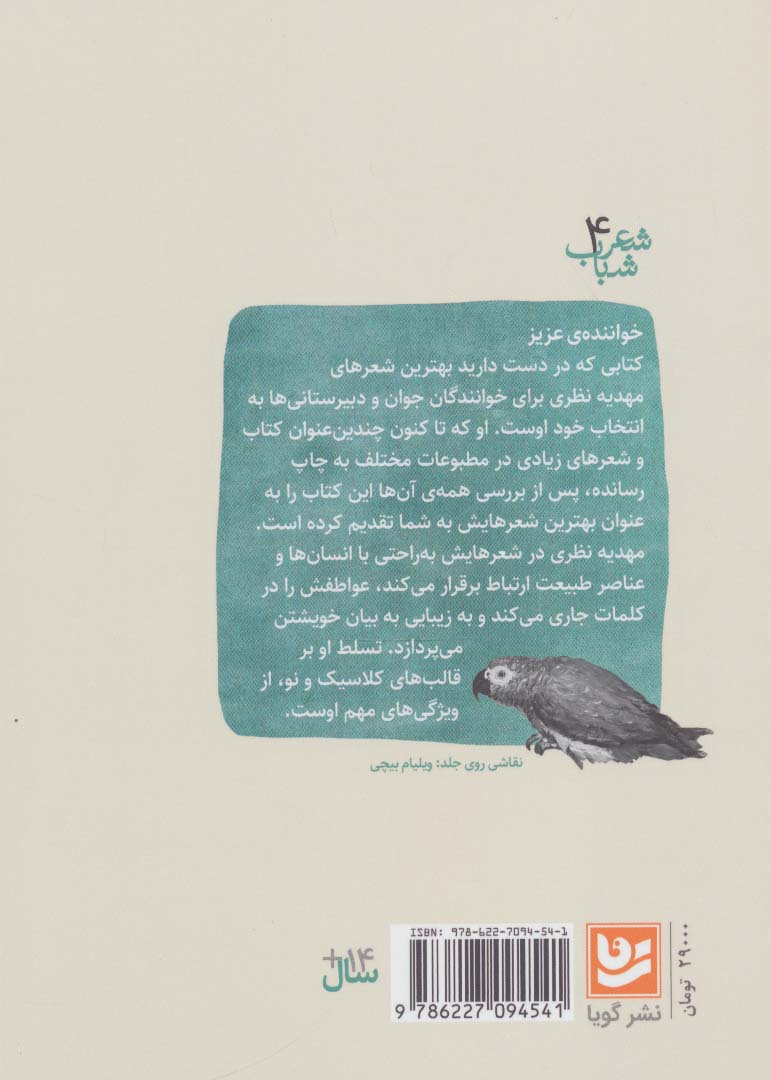 شعر ۴
شباب
خواننده‌ی عزیز
کتابی که در دست دارید بهترین شعرهای
مهدیه نظری برای خوانندگان جوان و دبیرستانی‌ها به
انتخاب خود اوست. او که تا کنون چندین‌عنوان کتاب
و شعرهای زیادی در مطبوعات مختلف به چاپ
رسانده، پس از بررسی همه‌ی آن‌ها این کتاب را به
عنوان بهترین شعرهایش به شما تقدیم کرده است.
مهدیه نظری در شعرهایش به‌راحتی با انسان‌ها و
عناصر طبیعت ارتباط برقرار می‌کند، عواطفش را در
کلمات جاری می‌کند و به زیبایی به بیان خویشتن
می‌پردازد. تسلط او بر
قالب‌های کلاسیک و نو، از
ویژگی‌های مهم اوست.
نقاشی روی جلد: ویلیام بیچی
۲۹۰۰۰ تومان
نشر گویا
ISBN: 978-622-7094-54-1
9 786227 094541
+۱۴
سال